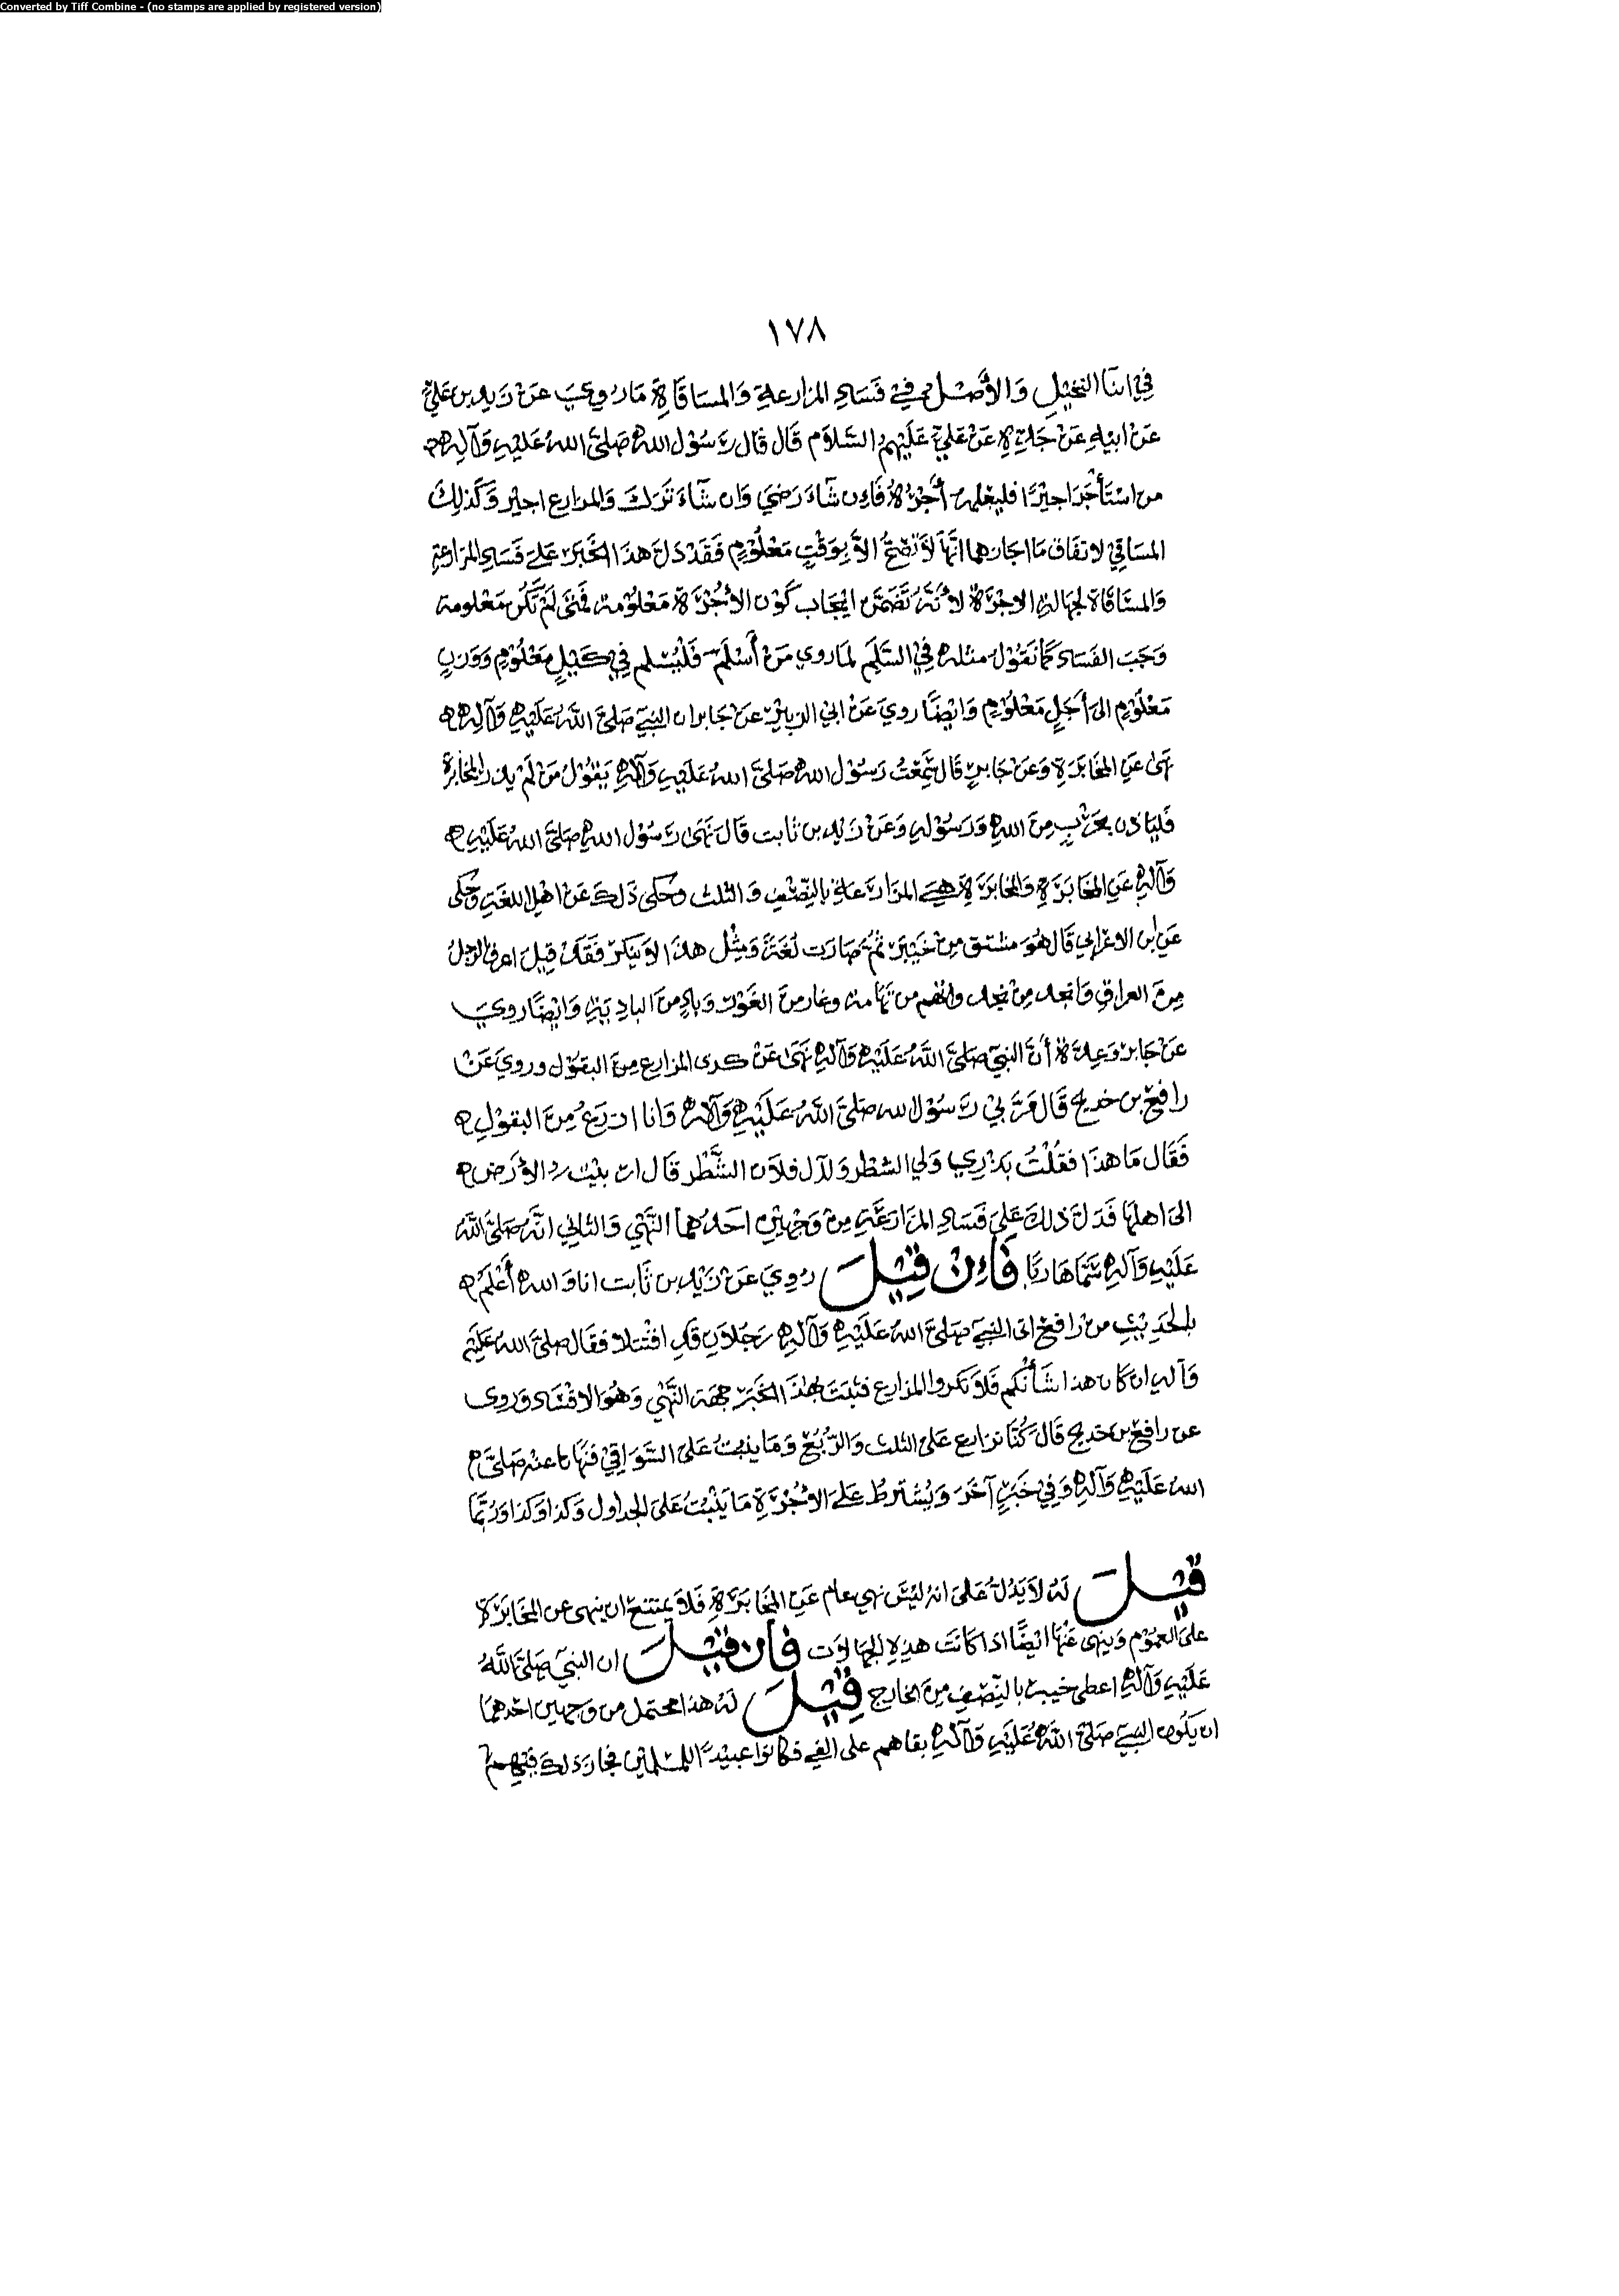 Converted by Tiff Combine - (no stamps are applied by registered version)
١٧٨
في اثنا النخيل وَالأَصْل في فَسَادِ المزارعةِ وَالمساقَاةِ مَا رُوِيَ عَنْ زَيد بن عَليٍّ
عَنْ ابيْهِ عَنْ جَدِّهِ عَنْ عَليٍّ عَلَيْهِمُ السَّلَام قَال قَال رَسُوْل اللهِ صَلَّى اللهُ عَلَيْهِ وَآلِهِ
من اسْتَأجَرَ اجيْرًا فليعْلمه أَجْرَهُ فَاِن شآءَ رَضيَ وَان شآءَ تَرَكَ وَالمزارع اجيْر وَكَذلِكَ
المسَاقي لاتفَاق مَا اجازهما انَّهَا لاَ تَصْحُّ الاَّ بِوَقْتٍ مَعْلُوْمٍ فَقَدْ دَلَّ هذَا الخَبَرَ عَلىَ فَسَادِ المزَارعَةِ
وَالمسَاقَاة لجهَالة الاجْرَة لأَنَّهُ تَضَمَّنَ ايْجَاب كَوْن الأُجْرَة مَعْلُوْمَة فَمَتى لَمْ تَكُن مَعْلومة
وَجَبَ الفَسَاد كَمَا نَقُوْل مثله فِيْ السَّلَمِ لماروي مَنْ أَسْلَمَ فَلْيُسْلِم فِيْ كَيْلٍ مَعْلُوْمٍ وَوَزنٍ
مَعْلُوْمٍ الىَ أَجَلٍ مَعْلُوْمٍ وَايْضًا رويَ عَنْ ابي الزبيْر عَنْ جَابر ان النبيَّ صَلىَّ اللَّهُ عَلَيْهِ وَآلِهِ
نَهَى عَنِ المخَابَرَةِ وَعَنْ جَابرٍ قَال سَمِعْتُ رَسُوْل اللهِ صَلىَّ اللهُ عَلَيْهِ وَآلِهِ يَقُوْلُ مَنْ لَمْ يذر المخَابرَةَ
فَلْيَاذن بحَرْبٍ مِنَ اللهِ وَرَسُوْلهِ وَعَنْ زَيد بن ثابت قَالَ نَهَى رَسُوْل اللهِ صَلىَّ اللهُ عَلَيْهِ
وَآلِهِ عَنِ المخَابَرَةِ وَالمخَابَرَة هِيَ المزَارَعَة بالنِّصْفِ وَالثلث وحَكى ذَلك عَنْ اهْل اللغَةِ وَحكى
عَن ابن الاعْرَابي قَال هُوَ مشتق مِنْ خَيْبَرَ ثُمَّ صَارَت لُغَةً وَمِثْل هذَا لاَ ينكَر فَقَد قِيلَ اعرق الرجلُ
مِنَ العراقِ وَانجد مِنْ نجد واتهم من تهَامة وغار منَ الغَوْر وَبادٍ منَ البادِيَةِ وَايْضًا رويَ
عَنْ جَابر وَعِدَّة أَنَّ النبيَّ صَلىَّ اللَّهُ عَلَيْهِ وَآلِهِ نَهَى عَنْ كرى المزارع مِنَ البقوْل ورويَ عَنْ
رافعْ بن خديج قَال مَرَّ بيْ رَسُوْل الله صَلىَّ اللَّهُ عَلَيْهِ وَآلِهِ وَانا ازرَعُ مِنَ البقولِ
فَقَال مَا هذَا فقُلْتُ بَذْرِي وَلي الشطْر وَلآل فلاَن الشَّطْر قَال اربيْت رد الأَرَض
الىَ اهلهَا فَدَلَّ ذلكَ عَلىَ فَسَادِ المزَارَعَةِ مِنْ وَجْهَيْنِ احَدهُما النَّهْي وَالثاني انَّهُ صَلىَّ اللَّهُ
عَلَيْهِ وَآلِهِ سَمَّاهَا رِبًا فَاِنْ قِيْلَ رُوِيَ عَنْ زَيْد بن ثَابت انا وَاللهِ أَعْلَمُ
بالحَدِيْثِ من رَافعْ اتى النبيَّ صَلىَّ اللهُ عَلَيْهِ وَآلِهِ رَجُلاَنِ قَدِ اقْتتلاَ فقَال صَلىَّ اللهُ عَلَيْهِ
وَآله ان كان هذا شَأنُكُم فَلاَ تكروا المزارع فثَبتَ بهَذَا الخَبَرَ جهَة النَّهْي وَهُوَ الاقْتتَال وَروى
عن رافعْ بن خديج قَالَ كُنَّا نزارع عَلىَ الثلث وَالرُّبُعْ وَمَا ينبتُ عَلىَ السَّوَاقيْ فنَهَانا عنه صَلىَّ
اللهُ عَلَيْهِ وَآلِهِ وَفِيْ خَبَرٍ آخَرَ وَيُشْتَرطُ عَلىَ الأُجْرَةِ مَا يَنْبُتُ عَلىَ الجداول وَكذا وَكَذا وَرُبَّمَا
قِيْلَ لَهُ لاَ يَدُلُّ عَلىَ انهُ ليْسَ نهي عام عَنِ المخَابَرَةِ فَلاَ يمتنع ان ينهى عن المخَابَرَةِ
علىَ العمُوْم وَينهى عَنْهَا ايْضًا اذا كَانَتَ هذِهِ الجهَالاَت فَاِن قِيْلَ ان النبيَّ صَلىَّ اللَّهُ
عَلَيْهِ وَآلِهِ اعطى خيبر بالنِّصْفِ مِنَ الخارج قِيْلَ لَهُ هذا محتمل من وَجهين احَدهما
ان يَكُون النبيَّ صَلىَّ اللَّهُ عَلَيْهِ وَآلِهِ بقاهم على الفي فكانوا عبيْدًا للمسْلمين فجاز ذلك فيهم